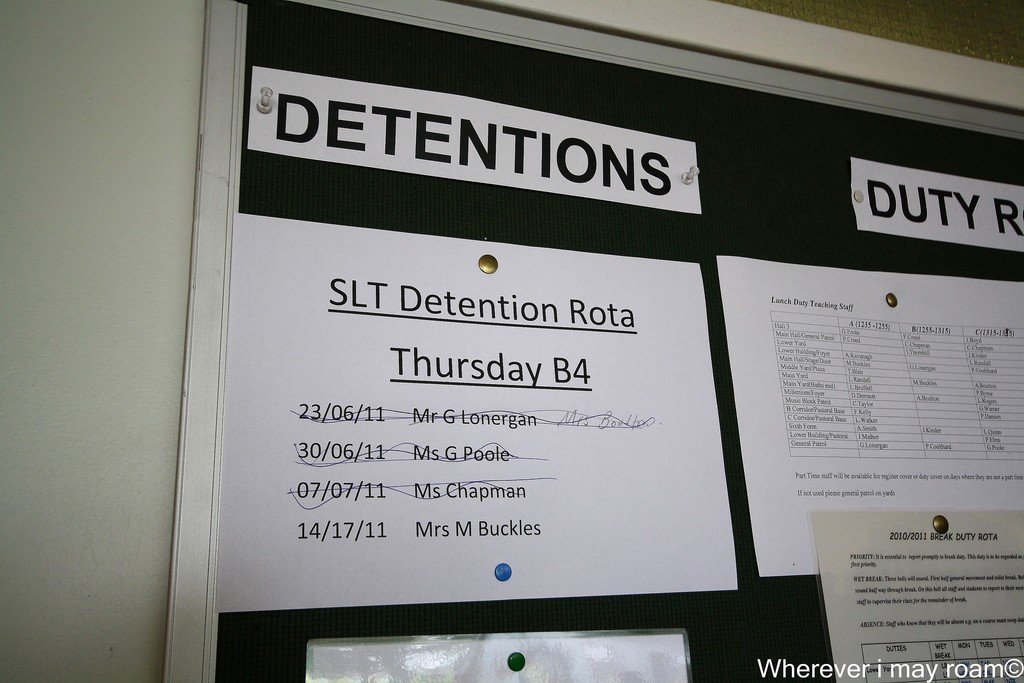 DETENTIONS
DUTY
SLT Detention Rota
Thursday B4
23/06/11 Mr G Lonergan Mrs Boulton.
30/06/11 Ms G Poole
07/07/11 Ms Chapman
14/17/11 Mrs M Buckles
Lunch Duty Teaching Staff
A (1235 -1255) B(1255-1315)
Hall 3 G.Poole P.Creed J.Boyd
Main Hall/General Patrol P.Creed C.Chapman C.Chapman
Lower Yard
Lower Building/Foyer A.Kavanagh
Main Hall/Stage/Door M.Buckles
Middle Yard/Plaza T.Blair
Main Yard L.Randall
Main Yard(Baths end)
Millenium/Foyer D.Dermott
Music Block Patrol C.Taylor
B Corridor/Pastoral Base F.Kelly
C Corridor/Pastoral Base L.Walker
Sixth Form A.Smith J.Kinder L.Quinn
Lower Building/Pastoral J.Mather
General Patrol G.Lonergan P.Coulthard G.Poole
Part Time staff will be available for register cover or duty cover on days where they are not a part time
If not used please general patrol on yards
2010/2011 BREAK DUTY ROTA
PRIORITY: It is essential to report promptly to break duty. This duty is to be regarded as
first priority.
WET BREAK: Three bells will sound. First half general movement and toilet break.
sound half way through break. On this bell all staff and students to report to their
staff to supervise their class for the remainder of break.
ABSENCE: Staff who know that they will be absent e.g. on a course must swap
DUTIES WET BREAK MON TUES WED
Wherever i may roam©